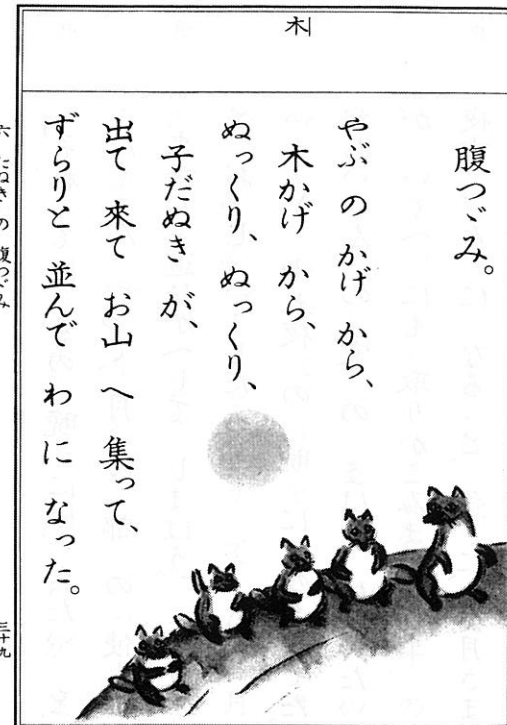 木
腹つゞみ。
やぶ の かげ から、
木かげ から、
ぬっくり、ぬっくり、
子だぬき が、
出て 來て お山 へ 集って、
ずらりと 並んで わ に なった。
六 たぬき の 腹つゞみ
三十九